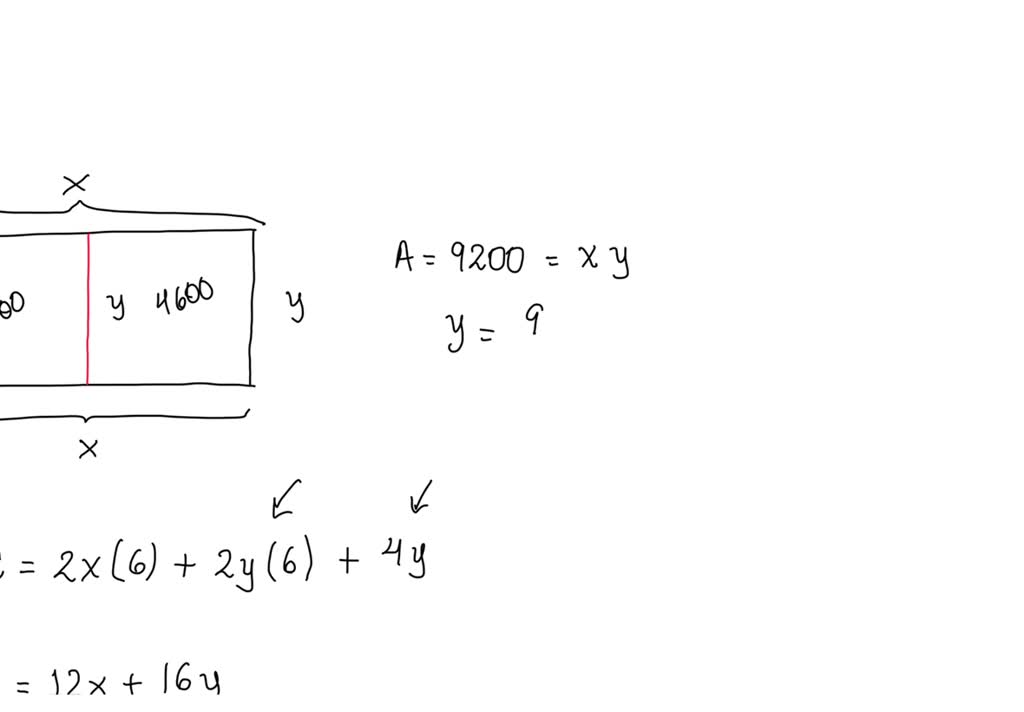 x
00 y 4600 y
A = 9200 = x y
y = 9
x
= 2x(6) + 2y(6) + 4y
= 12x + 16y